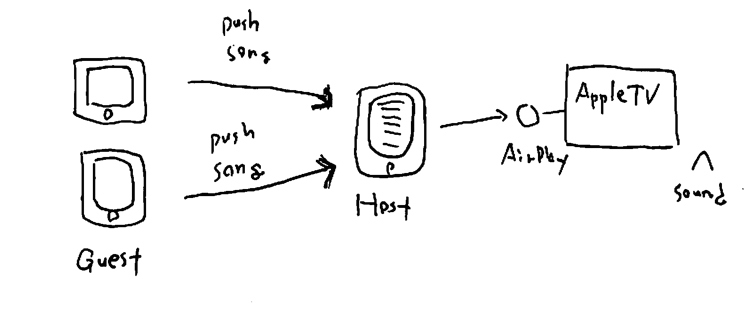 push
song
push
song
Guest
Host
AirPlay
AppleTV
sound